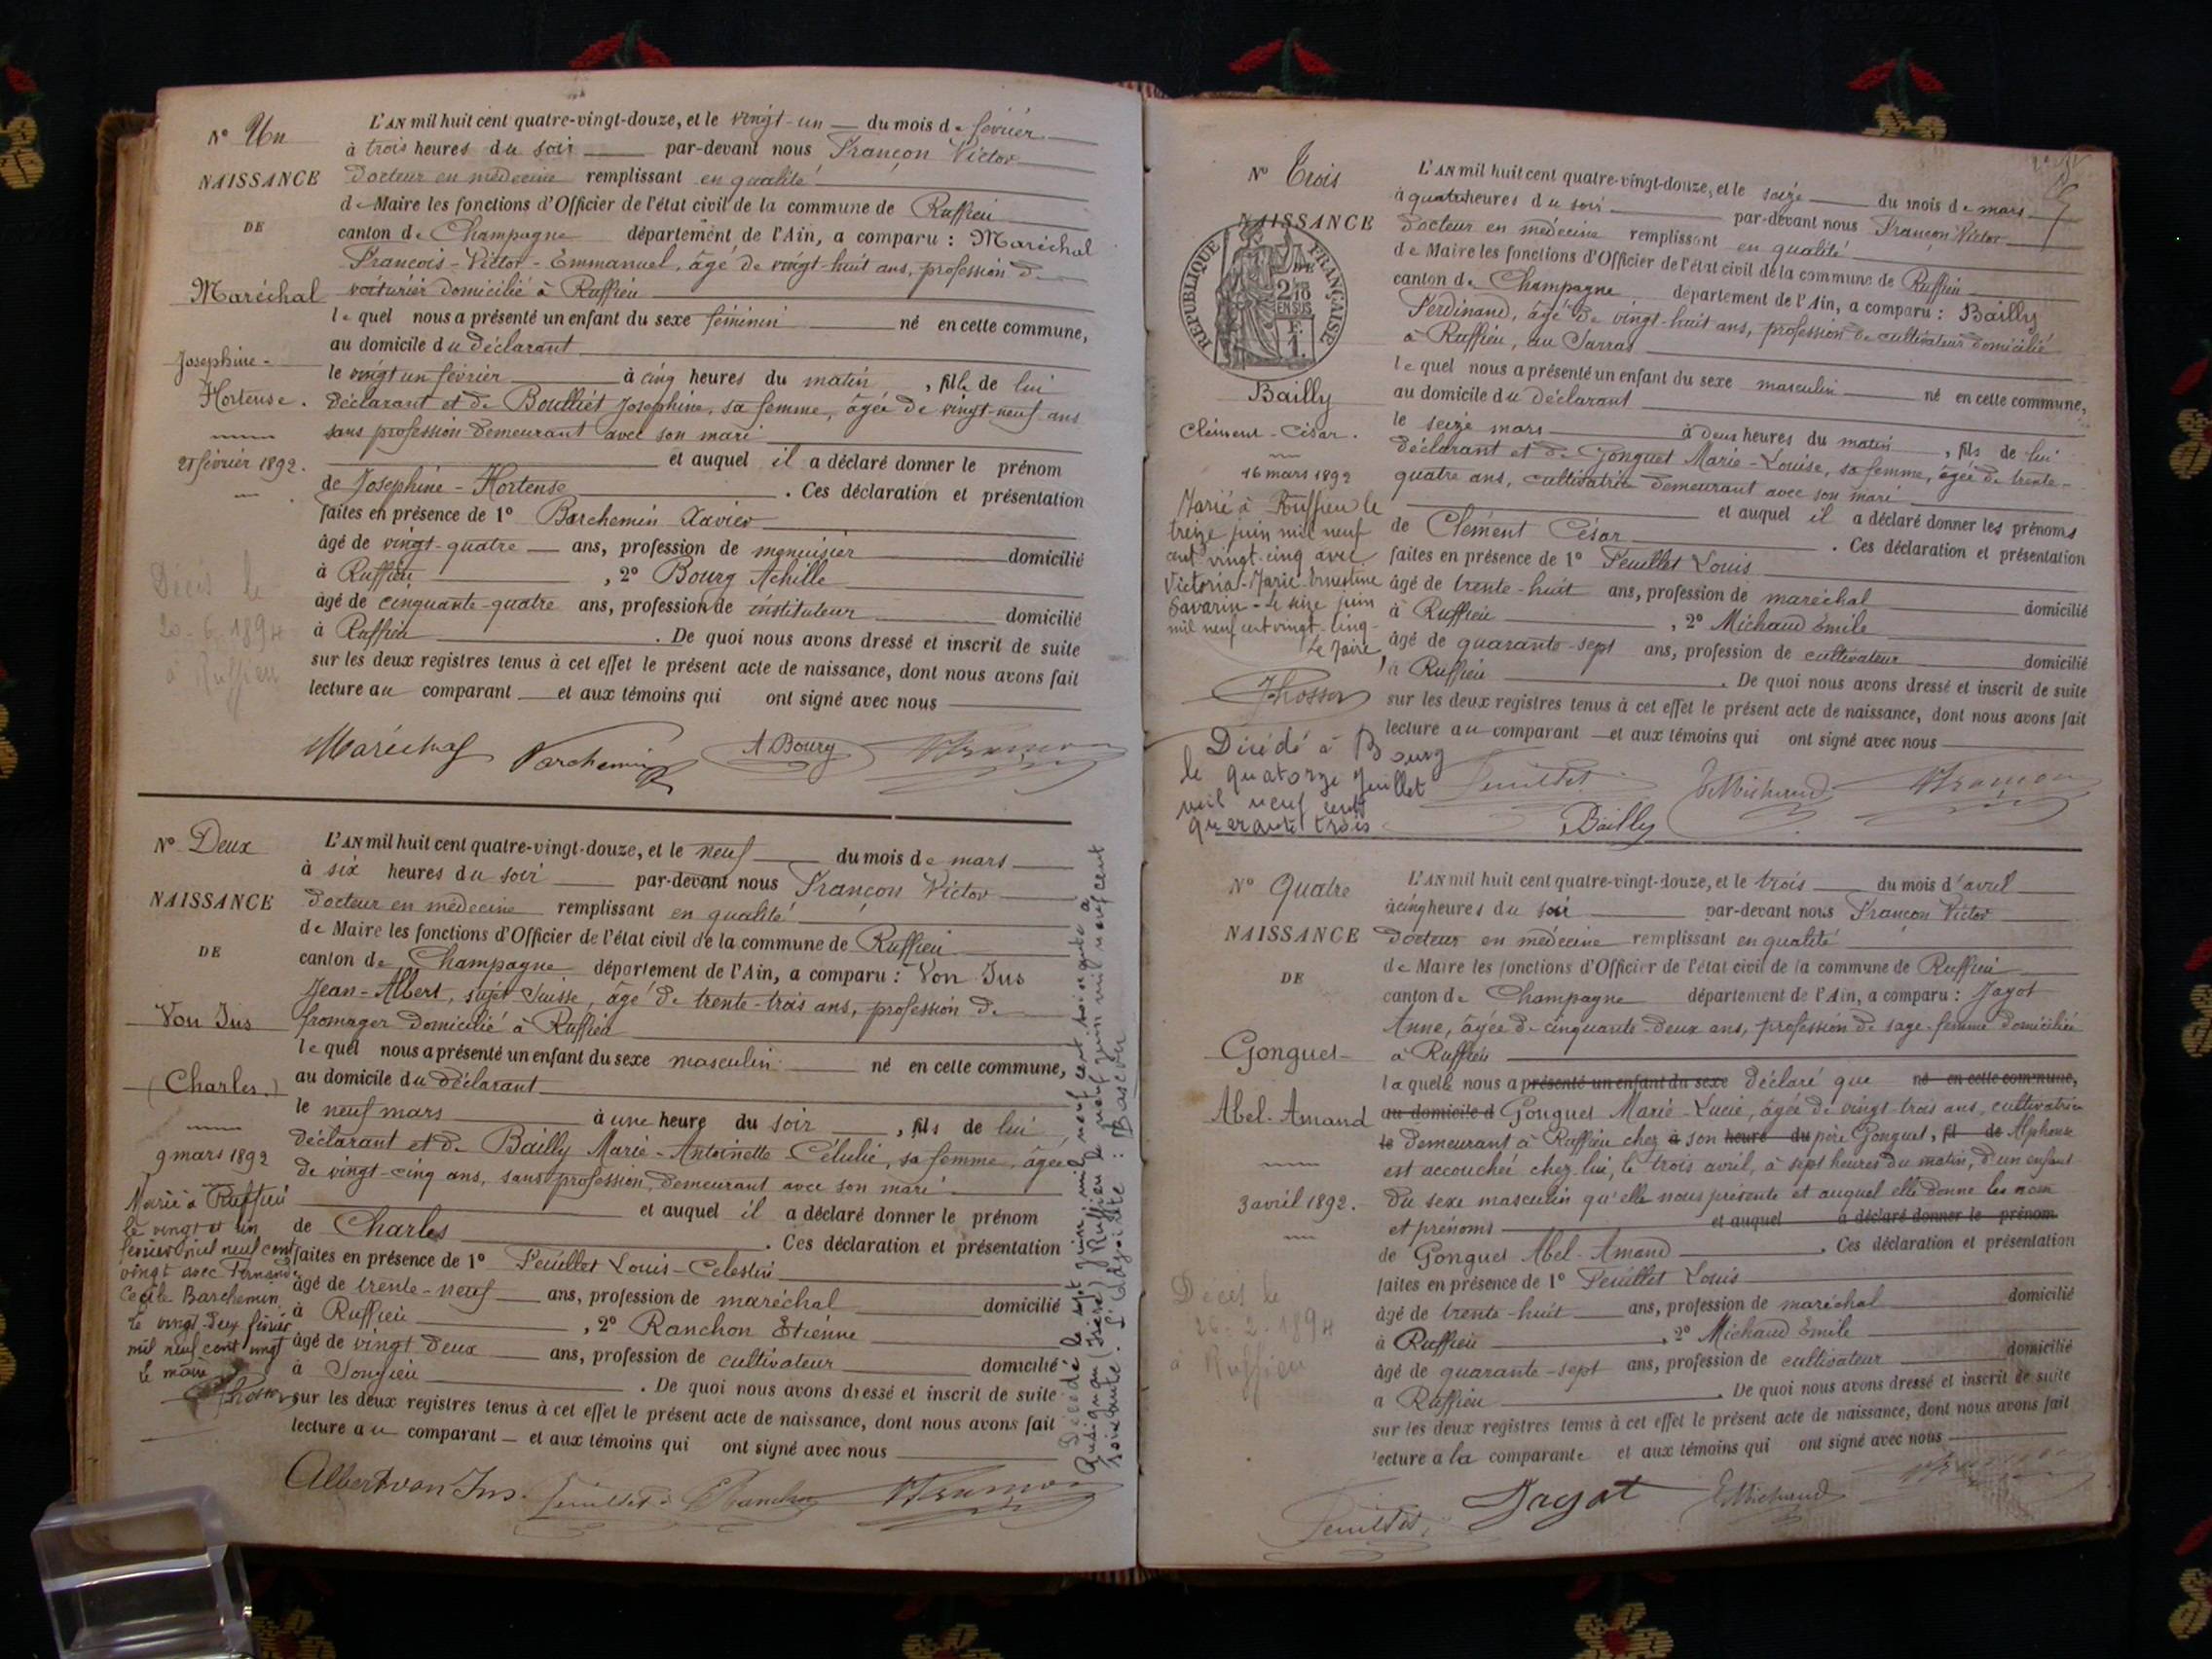 N° Un
NAISSANCE
DE
Maréchal
Josephine-
Hortense.
21 février 1892.
Décès le
20-6-1894
à Ruffieu
L'AN mil huit cent quatre-vingt-douze, et le vingt-un du mois de février
à trois heures du soir par-devant nous Françon Victor
docteur en médecine remplissant en qualité
de Maire les fonctions d'Officier de l'état civil de la commune de Ruffieu
canton de Champagne département de l'Ain, a comparu : Maréchal
François-Victor-Emmanuel, âgé de vingt-huit ans, profession de
voiturier domicilié à Ruffieu
lequel nous a présenté un enfant du sexe féminin né en cette commune,
au domicile du déclarant
le vingt un février à cinq heures du matin, fille de lui
déclarant et de Boulliet Josephine, sa femme, âgée de vingt-neuf ans
sans profession demeurant avec son mari
et auquel il a déclaré donner le prénom
de Josephine-Hortense. Ces déclaration et présentation
faites en présence de 1° Barchemin Xavier
âgé de vingt-quatre ans, profession de menuisier domicilié
à Ruffieu, 2° Bourg Achille
âgé de cinquante-quatre ans, profession de instituteur domicilié
à Ruffieu. De quoi nous avons dressé et inscrit de suite
sur les deux registres tenus à cet effet le présent acte de naissance, dont nous avons fait
lecture au comparant et aux témoins qui ont signé avec nous
Maréchal Barchemin A Bourg VFrançon
N° Deux
NAISSANCE
DE
Von Ins
(Charles.)
9 mars 1892
Marié à Ruffieu
le vingt et un
février mil neuf cent
vingt avec Fernande
Cécile Barchemin
le vingt-deux février
mil neuf cent vingt
le maire
L'AN mil huit cent quatre-vingt-douze, et le neuf du mois de mars
à six heures du soir par-devant nous Françon Victor
docteur en médecine remplissant en qualité
de Maire les fonctions d'Officier de l'état civil de la commune de Ruffieu
canton de Champagne département de l'Ain, a comparu : Von Ins
Jean-Albert, sujet Suisse, âgé de trente-trois ans, profession de
fromager domicilié à Ruffieu
lequel nous a présenté un enfant du sexe masculin né en cette commune,
au domicile du déclarant
le neuf mars à une heure du soir, fils de lui
déclarant et de Bailly Marie-Antoinette-Célulie, sa femme, âgée
de vingt-cinq ans, sans profession, demeurant avec son mari
et auquel il a déclaré donner le prénom
de Charles. Ces déclaration et présentation
faites en présence de 1° Feuillet Louis-Celestin
âgé de trente-neuf ans, profession de maréchal domicilié
à Ruffieu, 2° Ranchon Etienne
âgé de vingt deux ans, profession de cultivateur domicilié
à Songieu. De quoi nous avons dressé et inscrit de suite
sur les deux registres tenus à cet effet le présent acte de naissance, dont nous avons fait
lecture au comparant et aux témoins qui ont signé avec nous
Albert von Ins. Feuillet ERanchon VFrançon
Décédé le sept juin mil neuf cent soixante à
(Isère) Ruffieu le neuf juin mil neuf cent
soixante. L'Adjointe :
N° Trois
NAISSANCE
DE
REPUBLIQUE FRANÇAISE
2/10
EN SUS
F.
1.
Bailly
Clément-César.
16 mars 1892
Marié à Ruffieu le
treize juin mil neuf
cent vingt-cinq avec
Victoria-Marie-Ernestine
Savarin - Le seize juin
mil neuf cent vingt-cinq-
Le Maire
Décédé à Bourg
le quatorze Juillet
mil neuf cent
quarante trois
L'AN mil huit cent quatre-vingt-douze, et le seize du mois de mars
à quatre heures du soir par-devant nous Françon Victor
docteur en médecine remplissant en qualité
de Maire les fonctions d'Officier de l'état civil de la commune de Ruffieu
canton de Champagne département de l'Ain, a comparu : Bailly
Ferdinand, âgé de vingt-huit ans, profession de cultivateur domicilié
à Ruffieu, au Sarras
lequel nous a présenté un enfant du sexe masculin né en cette commune,
au domicile du déclarant
le seize mars à deux heures du matin, fils de lui
déclarant et de Gonguet Marie-Louise, sa femme, âgée de trente-
quatre ans, cultivatrice demeurant avec son mari
et auquel il a déclaré donner les prénoms
de Clément César. Ces déclaration et présentation
faites en présence de 1° Feuillet Louis
âgé de trente-huit ans, profession de maréchal domicilié
à Ruffieu, 2° Michaud Emile
âgé de quarante-sept ans, profession de cultivateur domicilié
à Ruffieu. De quoi nous avons dressé et inscrit de suite
sur les deux registres tenus à cet effet le présent acte de naissance, dont nous avons fait
lecture au comparant et aux témoins qui ont signé avec nous
Feuillet EMichaud VFrançon
Bailly
N° Quatre
NAISSANCE
DE
Gonguet
Abel-Amand
3 avril 1892.
Décès le
26-2-1894
à Ruffieu
L'AN mil huit cent quatre-vingt-douze, et le trois du mois d'avril
à cinq heures du soir par-devant nous Françon Victor
docteur en médecine remplissant en qualité
de Maire les fonctions d'Officier de l'état civil de la commune de Ruffieu
canton de Champagne département de l'Ain, a comparu : Jagot
Anne, âgée de cinquante-deux ans, profession de sage-femme domiciliée
à Ruffieu
laquelle nous a présenté un enfant du sexe déclaré que né en cette commune,
au domicile d Gonguet Marie-Lucie, âgée de vingt-trois ans, cultivatrice
le demeurant à Ruffieu chez à son heure du père Gonguet, fil de Alphonse
est accouchée chez lui, le trois avril, à sept heures du matin, d'un enfant
du sexe masculin qu'elle nous présente et auquel elle donne les nom
et prénoms et auquel a déclaré donner le prénom
de Gonguet Abel-Amand. Ces déclaration et présentation
faites en présence de 1° Feuillet Louis
âgé de trente-huit ans, profession de maréchal domicilié
à Ruffieu, 2° Michaud Emile
âgé de quarante-sept ans, profession de cultivateur domicilié
a Ruffieu. De quoi nous avons dressé et inscrit de suite
sur les deux registres tenus à cet effet le présent acte de naissance, dont nous avons fait
lecture a la comparante et aux témoins qui ont signé avec nous
Feuillet Jagot EMichaud VFrançon